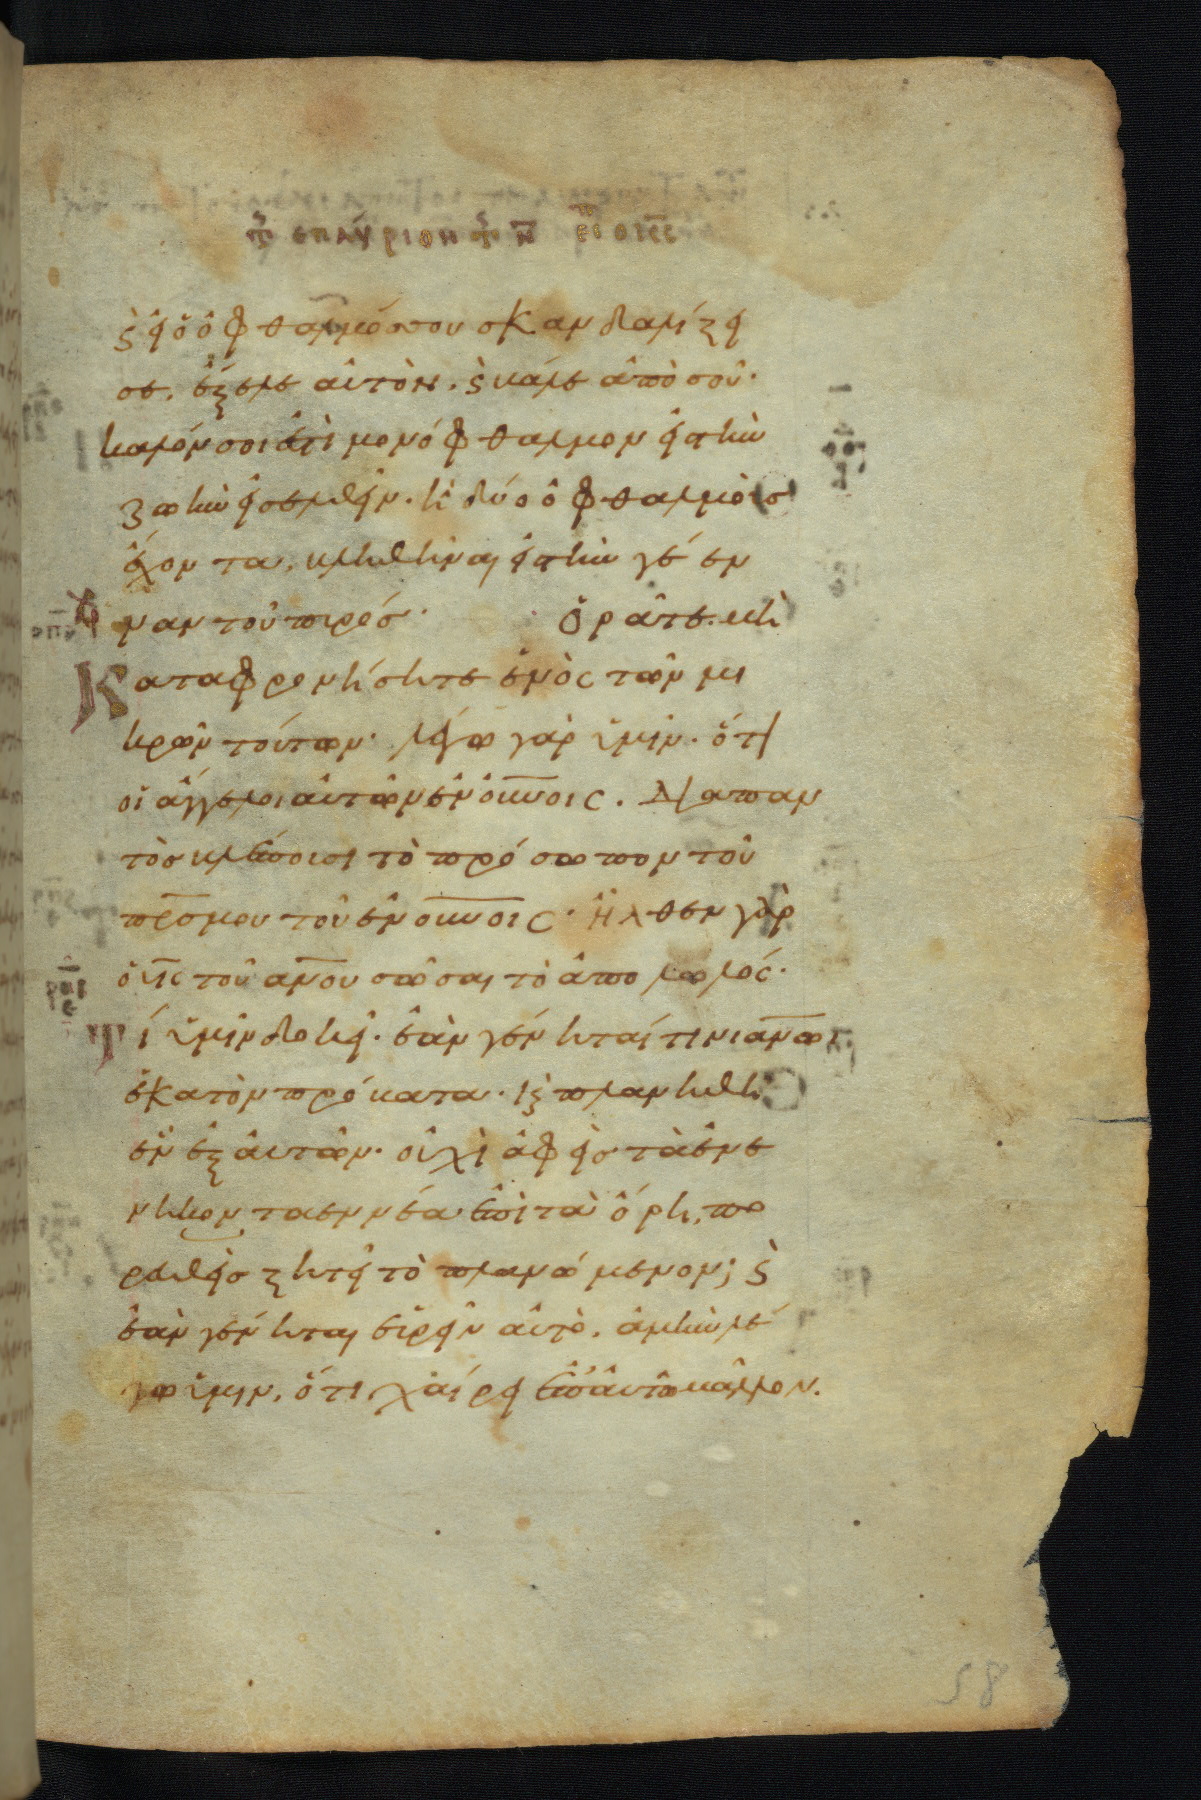 ϛ εἰ ὁ ὀφθαλμόσ σου σκανδαλίζει
σε. ἔξελε αὐτὸν. ϛ βάλε ἀπὸ σοῦ·
καλόν σοι ἐστὶ μονόφθαλμον εἰς τὴν
ζωὴν εἰσελθεῖν. ἢ δύο ὀφθαλμοὺσ
ἔχοντα. βληθῆναι εἰς τὴν γέεν
ναν τοῦ πυρόσ· Ὁρᾶτε. μὴ
Καταφρονήσητε ἑνὸς τῶν μι
κρῶν τούτων· λέγω γὰρ ὑμῖν. ὅτι
οἱ ἄγγελοι αὐτῶν ἐν οὐνοις. Διαπαν
τὸσ βλέπουσι τὸ πρόσωπον τοῦ
πρσ μου τοῦ ἐν οὐνοις· Ἦλθεν γὰρ
ὁ υἱς τοῦ ανου σῶσαι τὸ ἀπολωλός·
Τί ὑμῖν δοκεῖ. ἐὰν γένηταί τινι ανω
ἑκατὸν πρόβατα. ϛ πλανηθῆ
ἓν ἐξ αὐτῶν. οὐχὶ ἀφεὶσ τὰ ἐνε
νηκονταεννέα ἐπὶ τὰ ὄρη, πο
ρευθεὶσ ζητεῖ τὸ πλανώμενον; ϛ
ἐὰν γένηται εὑρεῖν αὐτὸ. ἀμὴν λέ
γω ὑμῖν, ὅτι χαίρει ἐπ' αὐτῶ μᾶλλον.
58